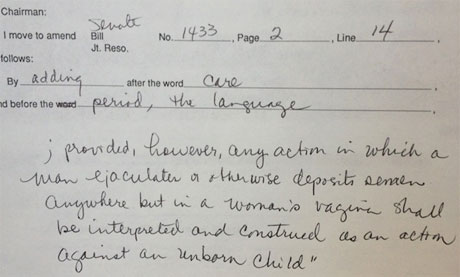 Chairman:
Senate
I move to amend Bill No. 1433, Page 2, Line 14,
Jt. Reso.
follows:
By adding after the word care,
nd before the word period, the language
; provided, however, any action in which a
man ejaculates or otherwise deposits semen
anywhere but in a woman's vagina shall
be interpreted and construed as an action
against an unborn child"